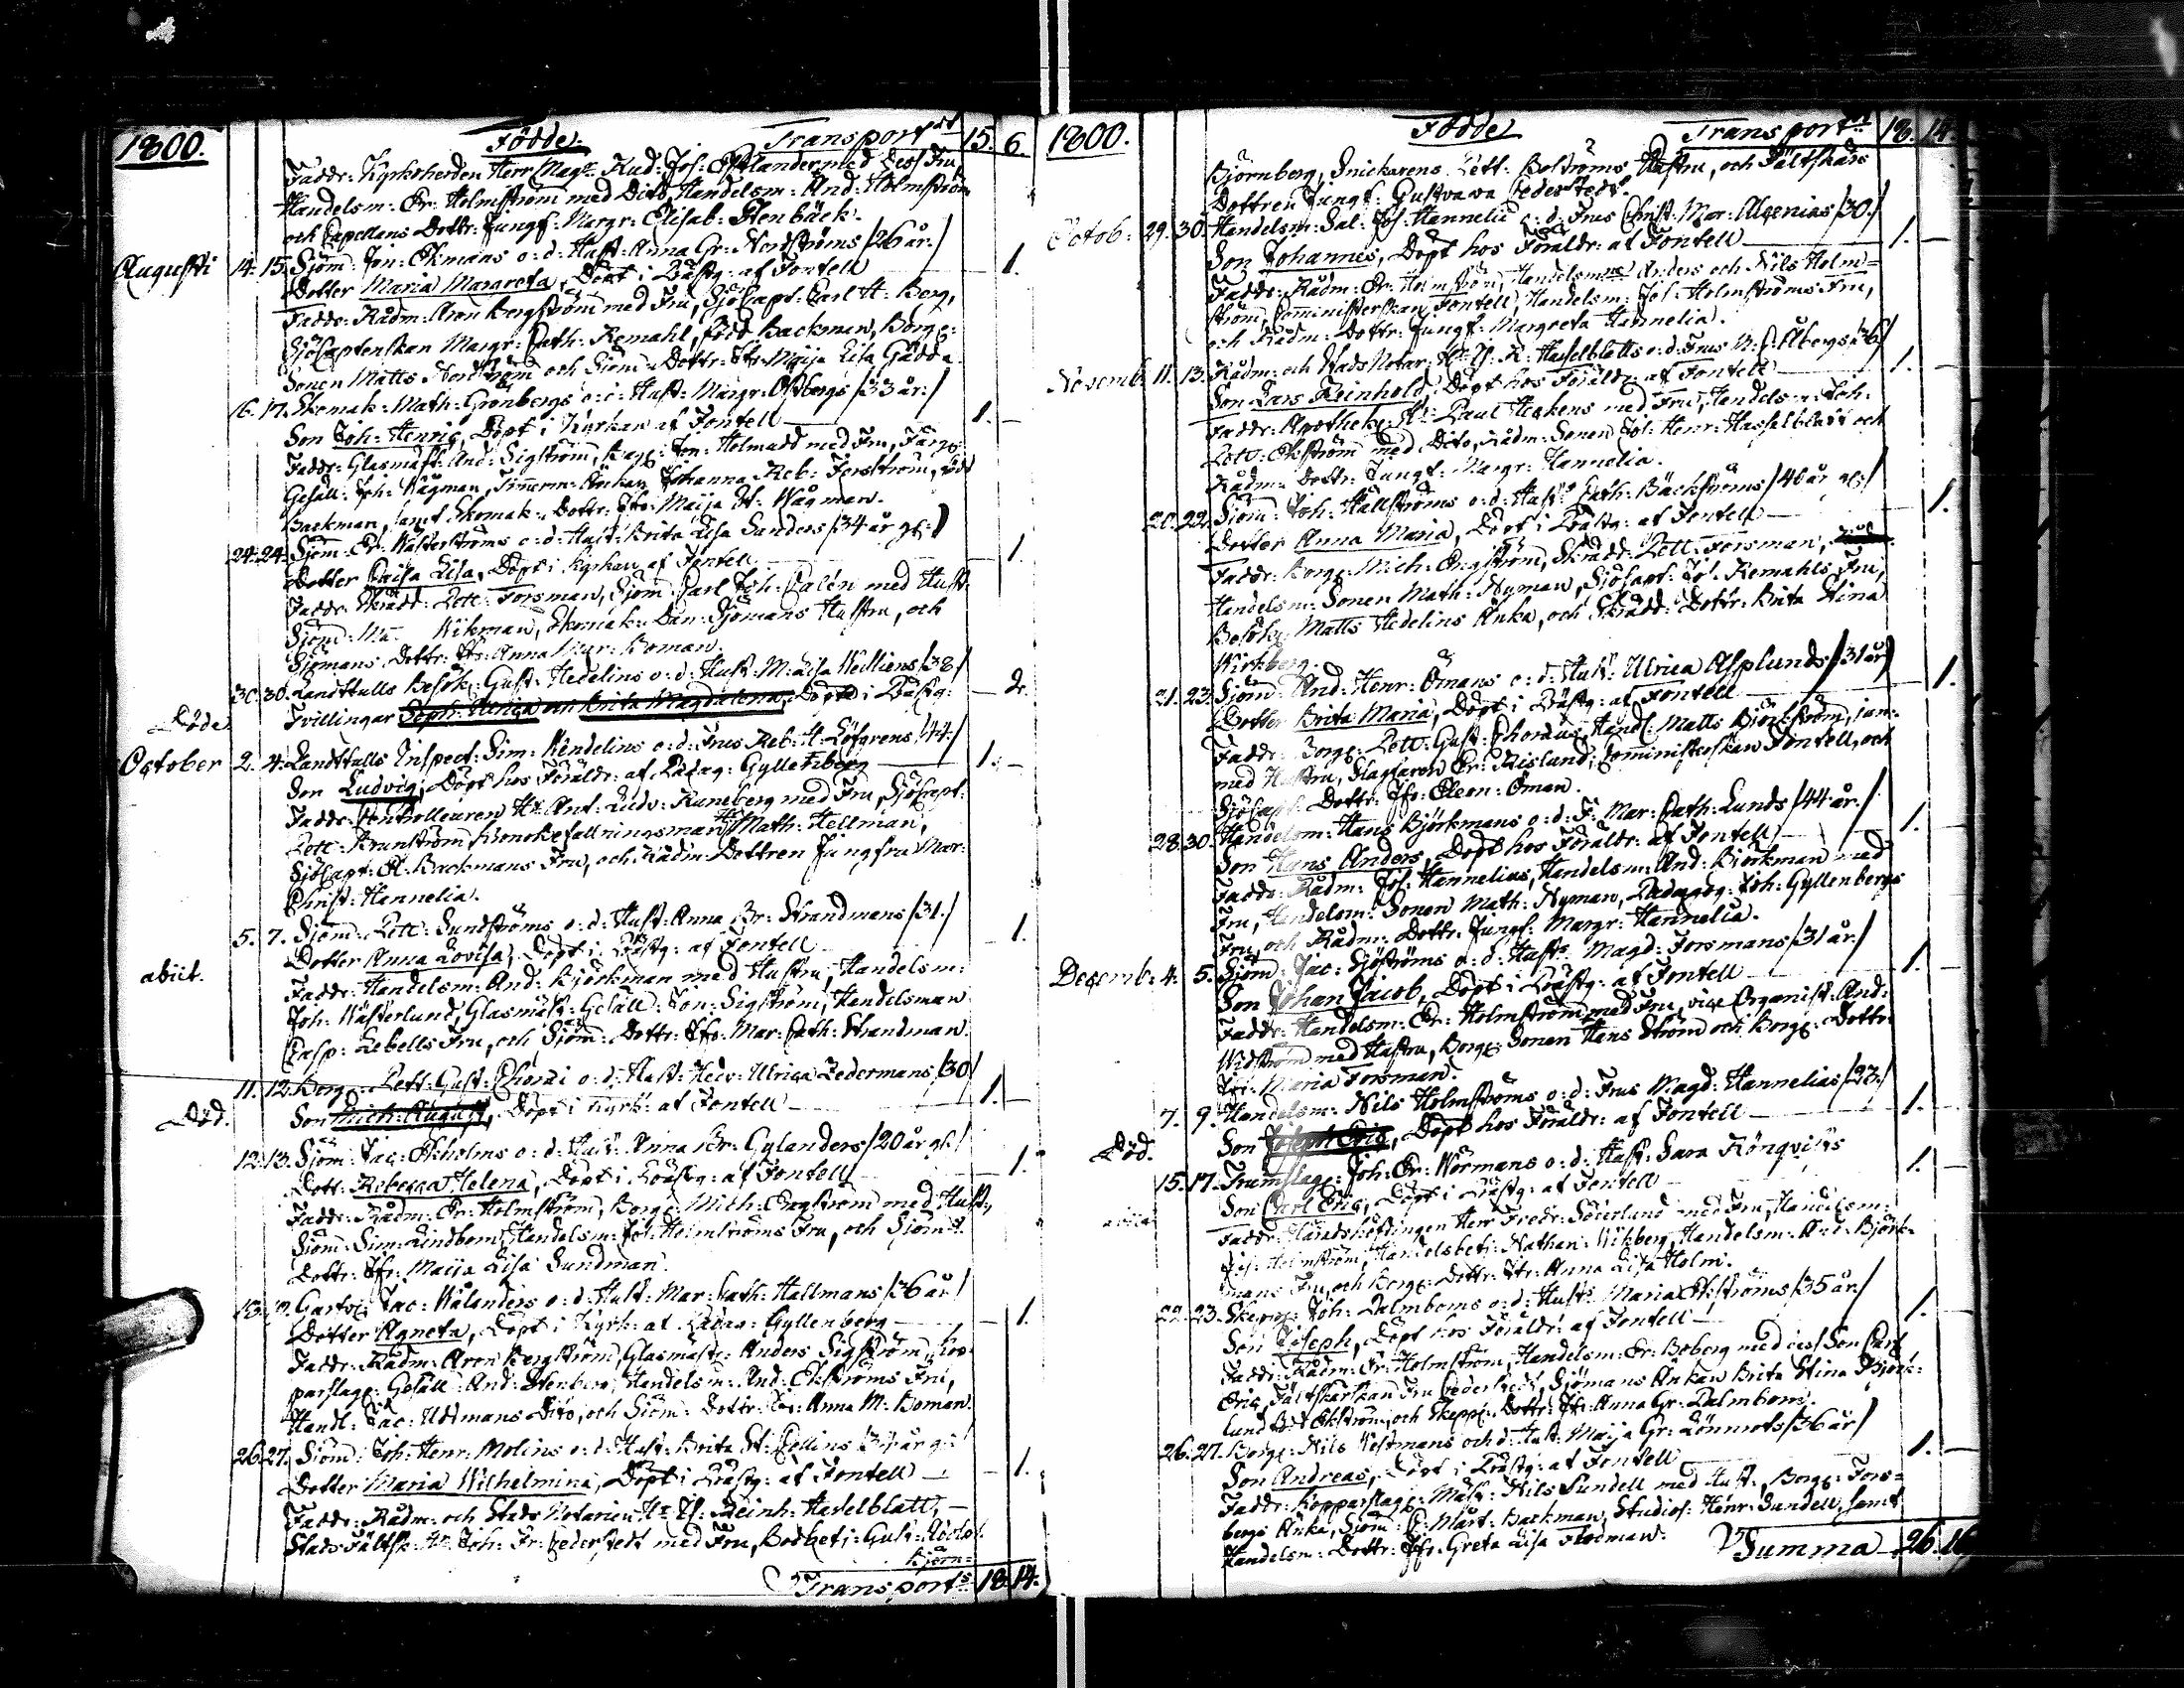 1800.
Födde.
Transport 15. 6
Fadde: Kyrkoherden Herr Mag: And: Jos: Estlander med Dess Fru,
Handelsm: Er: Holmström med Dito, Handelsm: And: Holmström
och Capellans Dottr: Jungf: Margr: Elisab: Stenbäck.
Augusti 14. 15. Sjöm: Jon: Ekmans o: d: Hust: Anna Gr: Nordströms /26 år:/
Dotter Maria Margreta, Döpt i Prästg: af Fontell 1.
Fadde: Rådm: Aron Bergström med Fru, SjöCapt: Carl H: Berg,
SjöCaptenskan Margr: Cath: Remahl, född Backman, Borg:
Sonen Matts Nordström och Sjöm: Dottr: Jfr: Maija Lisa Gädda.
16. 17. Skomak: Math: Grönbergs o: d: Hust: Margr: Östbergs /33 år:/
Son Joh: Henric, Döpt i Kyrkan af Fontell 1.
Fadde: Glasmäst: And: Sigström, Jon: Holmudd med Fru, Färg:
Gesäll: Joh: Wägman, Timmerm: Enkan Johanna Reb: Forsström, född
Backman, samt Skomak: Dottr: Jfr: Maija St: Wågman.
24. 24. Sjöm: Er: Wästerströms o: d: Hust: Brita Lisa Sanders /34 år gl:/
Dotter Caisa Lisa, Döpt i Kyrkan af Fontell 1.
Fadde: Skrädd: Lett: Forsman, Sjöm: Carl Joh: Calén med Hust:
Sjöm: Ma: Wikman, Skomak: Dan: Sjömans Hustru, och
Sjömans Dottr: Jfr: Anna Mar: Boman.
30. 30. Landttulls Besök: Gust: Hedelins o: d: Hust: M: Lisa Welliens /38./
Döde Tvillingar Soph: Ulrica och Brita Magdalena, Döpte i Prästg: 2.
October 2. 4. Landttulls Inspect: Sim: Wendelins o: d: Frus Reb: H: Löfgrens /44:/
Son Ludvig, Döpt hos Föräldr: af Pädag: Gyllenberg 1.
Fadde: Controlleuren Hr: Ant: Ludv: Runeberg med Fru, SjöCapt:
Lett: Brunström, Kronobefallningsman Hr: Math: Hellman,
SjöCapt: A: Backmans Fru, och Rådm: Dottren Jungfru Mar:
Christ: Hannelia.
5. 7. Sjöm: Lett: Sundströms o: d: Hust: Anna Br: Strandmans /31./
abiit. Dotter Anna Lovisa, Döpt i Prästg: af Fontell 1.
Fadde: Handelsm: And: Björckman med Hustru, Handelsm:
Joh: Wästerlund, Glasmäst: Gesäll: Jon: Sigström, Handelsman
Casp: Lebells Fru, och Sjöm: Dottr: Jfr: Mar: Cath: Strandman.
11. 12. Borg: Lett: Gust: Choræi o: d: Hust: Hedv: Ulrica Zedermans /30/
Död. Son Mich: August, Döpt i Kyrk: af Fontell 1.
12. 13. Sjöm: Jac: Ekholms o: d: Hust: Anna Br: Gylanders /20 år gl:/
Dott: Rebecca Helena, Döpt i Prästg: af Fontell 1.
Fadde: Rådm: Er: Holmström, Borg: Mich: Engström med Hust:,
Sjöm: Sim: Lindbom, Handelsm: Jos: Holmströms Fru, och Sjöm:
Dottr: Jfr: Maija Lisa Sundman.
Garfv: Jac: Wålanders o: d: Hust: Mar: Cath: Hallmans /36 år/
Dotter Agneta, Döpt i Kyrk: af Pädag: Gyllenberg 1.
Fadde: Rådm: Aron Bergström, Glasmäst: Anders Sigström, Kop-
parslag: Gesäll: And: Stenberg, Handelsm: And: Ekströms Fru,
Handl: Jac: Udtmans Dito, och Sjöm: Dottr: Jfr: Anna M: Boman.
26. 27. Sjöm: Joh: Henr: Molins o: d: Hust: Brita St: Collins /34 år gl:/
Dotter Maria Wilhelmina, Döpt i Prästg: af Fontell 1.
Fadde: Rådm: och Stads Notarien Hr: Is: Reinh: Hasselblatt,
Stads Fältsk: Hr: Joh: Fr: Cederstedt med Fru, Bodbetj: Gust: Adolph
Björn-
Transport: 18. 14.
1800.
Födde
Transport: 18. 14.
Björnberg, Snickarens Lett: Boströms Hustru, och Fältskärs
Dottren Jungf: Gustvava Cederstedt.
Octob: 29. 30. Handelsm: Sal: Jos: Hannelii o: d: Frus Christ: Mar: Algenias /30./
Son Johannes, Döpt hos Föräldr: af Fontell 1.
Fadde: Rådm: Er: Holmström, Handelsmne Anders och Nils Holm-
ström, Comministerskan Fontell, Handelsm: Jos: Holmströms Fru,
och Rådm: Dottr: Jungf: Margreta Hannelia.
Novemb: 11. 13. Rådm: och Stads Notar: Hr: Is: R: Hasselblatts o: d: Frus M: C: Åbergs /36/
Son Lars Reinhold, Döpt hos Föräldr: af Fontell 1.
Fadde: Apothek: Hr: Paul Heskens med Fru, Handelsm: Joh:
Lett: Ekström med Dito, Rådm: Sonen Jos: Henr: Hasselblatt och
Rådm: Dottr: Jungf: Margr: Hannelia.
20. 22. Sjöm: Joh: Hällströms o: d: Hust: Cath: Bäckströms /40 år gl:/
Dotter Anna Maria, Döpt i Prästg: af Fontell 1.
Fadde: Borg: Mich: Engström, Skrädd: Lett: Forsman,
Handelsm: Sonen Math: Nyman, SjöCapt: Jos: Remahls Fru,
Besök: Matts Hedelins Enka, och Skrädd: Dottr: Brita Stina
Wirkberg.
21. 23. Sjöm: And: Henr: Ömans o: d: Hust: Ulrica Asplunds /31 år/
Dotter Brita Maria, Döpt i Prästg: af Fontell 1.
Fadde: Borg: Lett: Gust: Choræus, Handl: Matts Björkström, jun:
med Hustru, Slagtaren Er: Nisland, Comministerskan Fontell, och
SjöCapt: Dottr: Jfr: Eleon: Öman.
28. 30. Handelsm: Hans Björkmans o: d: F: Mar: Cath: Lunds /44 år:/
Son Hans Anders, Döpt hos Föräldr: af Fontell 1.
Fadde: Rådm: Jos: Hannelius, Handelsm: And: Björkman med
Fru, Handelsm: Sonen Math: Nyman, Pädagog: Joh: Gyllenbergs
Fru, och Rådm: Dottr: Jungf: Margr: Hannelia.
Decemb: 4. 5. Sjöm: Jac: Sjöströms o: d: Hust: Magd: Forsmans /31 år:/
Son Johan Jacob, Döpt i Prästg: af Fontell 1.
Fadde: Handelsm: Er: Holmström med Fru, vice Organist: And:
Widström med Hustru, Borg: Sonen Hans Ström och Borg: Dottr:
Jfr: Maria Forsman.
7. 9. Handelsm: Nils Holmströms o: d: Frus Magd: Hannelias /27:/
Död. Son Joseph Eric, Döpt hos Föräldr: af Fontell 1.
15. 17. Trumslag: Joh: Er: Wörmans o: d: Hust: Sara Rönqvists
Son Carl Eric, Döpt i Prästg: af Fontell 1.
Fadde: Häradshöfdingen Herr Fredr: Söderlund med Fru, Handelsm:
Jos: Holmström, Handelsbetj: Nathan: Wikberg, Handelsm: And: Björk-
mans Fru, och Borg: Dottr: Jfr: Anna Lisa Holm.
22. 23. Skepp: Joh: Dalmboms o: d: Hust: Maria Ekströms /35 år/
Son Joseph, Döpt hos Föräldr: af Fontell 1.
Fadde: Rådm: Er: Holmström, Handelsm: Er: Boberg med dess Son Carl
Eric, Fältskärskan Fru Cederstedt, Sjömans Enkan Brita Stina Björk-
lund född Ekström, och Skepp: Dottr: Jfr: Anna Gr: Dalmbom.
26. 27. Borg: Nils Westmans och d: Hust: Maija Gr: Lönnrots /36 år/
Son Andreas, Döpt i Prästg: af Fontell 1.
Fadde: Kopparslag: Mäst: Nils Sundell med Hust:, Borg: Fors-
bergs Enka, Sjöm: C: Mårt: Backman, Studios: Henr: Sundell, samt
Handelsm: Dottr: Jfr: Greta Lisa Flodman.
Summa 26. 16